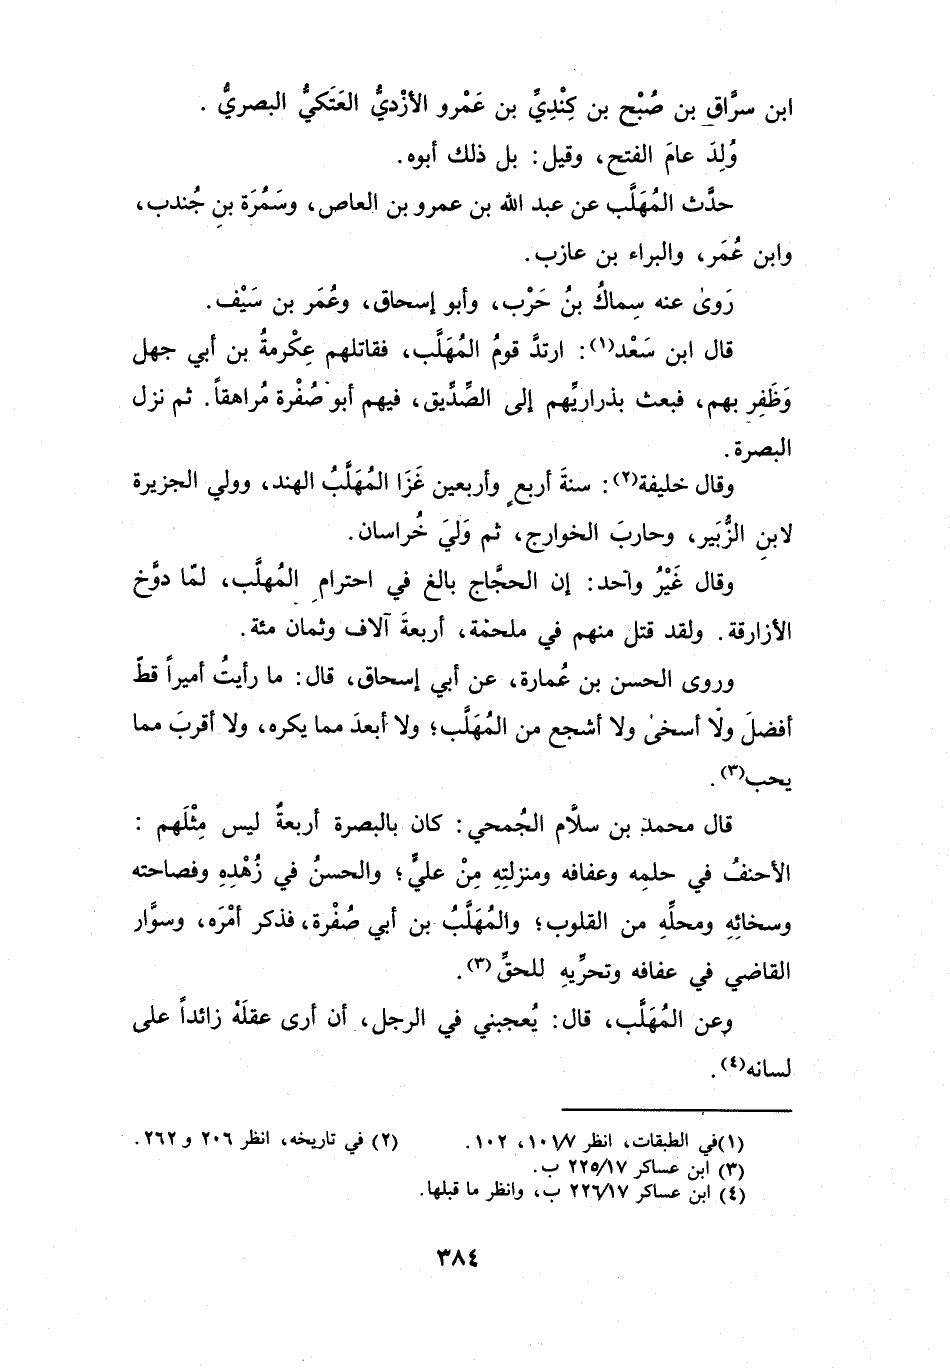 ابن سرَّاقِ بن صُبْح بن كِنْدِيِّ بن عَمْرو الأزْديُّ العَتَكيُّ البصريُّ .
وُلِدَ عامَ الفتح، وقيل: بل ذلك أبوه.
حدَّث المُهَلَّب عن عبد الله بن عمرو بن العاص، وسَمُرَة بنِ جُندب،
وابن عُمَر، والبراء بن عازب.
رَوىٰ عنه سِماكُ بنُ حَرْب، وأبو إسحاق، وعُمَر بن سَيْف.
قال ابن سَعْد(١): ارتدَّ قومُ المُهَلَّب، فقاتلهم عِكْرمةُ بن أبي جهل
وَظَفِرِ بهم، فبعث بذراريِّهم إلى الصِّدِّيق، فيهم أبو صُفْرة مُراهقاً. ثم نزل
البصرة.
وقال خليفة(٢): سنةَ أربعٍ وأربعين غَزَا المُهَلَّبُ الهند، وولي الجزيرة
لابنِ الزُّبَير، وحاربَ الخوارج، ثم وَليَ خُراسان.
وقال غَيْرُ واحد: إن الحجَّاج بالغ في احترامِ المُهلَّب، لمّا دوَّخ
الأزارقة. ولقد قتل منهم في ملحمْة، أربعةَ آلاف وثمان مئة.
وروى الحسن بن عُمارة، عن أبي إسحاق، قال: ما رأيتُ أميراً قطّ
أفضلَ ولا أسخىٰ ولا أشجع من المُهَلَّب؛ ولا أبعدَ مما يكره، ولا أقربَ مما
يحب(٣).
قال محمد بن سلَّام الجُمحي: كان بالبصرة أربعةٌ ليس مِثْلَهم :
الأحنفُ في حلمِه وعفافه ومنزلتِهِ مِنْ عليٍّ؛ والحسنُ في زُهْدِهِ وفصاحته
وسخائِهِ ومحلِّهِ من القلوب؛ والمُهَلَّبُ بن أبي صُفْرة، فذكر أمْرَه، وسوَّار
القاضي في عفافه وتحرِّيهِ للحقِّ(٣).
وعن المُهَلَّب، قال: يُعجبني في الرجل، أن أرى عقلَهُ زائداً على
لسانه(٤).
(١)في الطبقات، انظر ١٠١/٧، ١٠٢. (٢) في تاريخه، انظر ٢٠٦ و ٢٦٢.
(٣) ابن عساكر ٢٢٥/١٧ ب.
(٤) ابن عساكر ٢٢٦/١٧ ب، وانظر ما قبلها.
٣٨٤